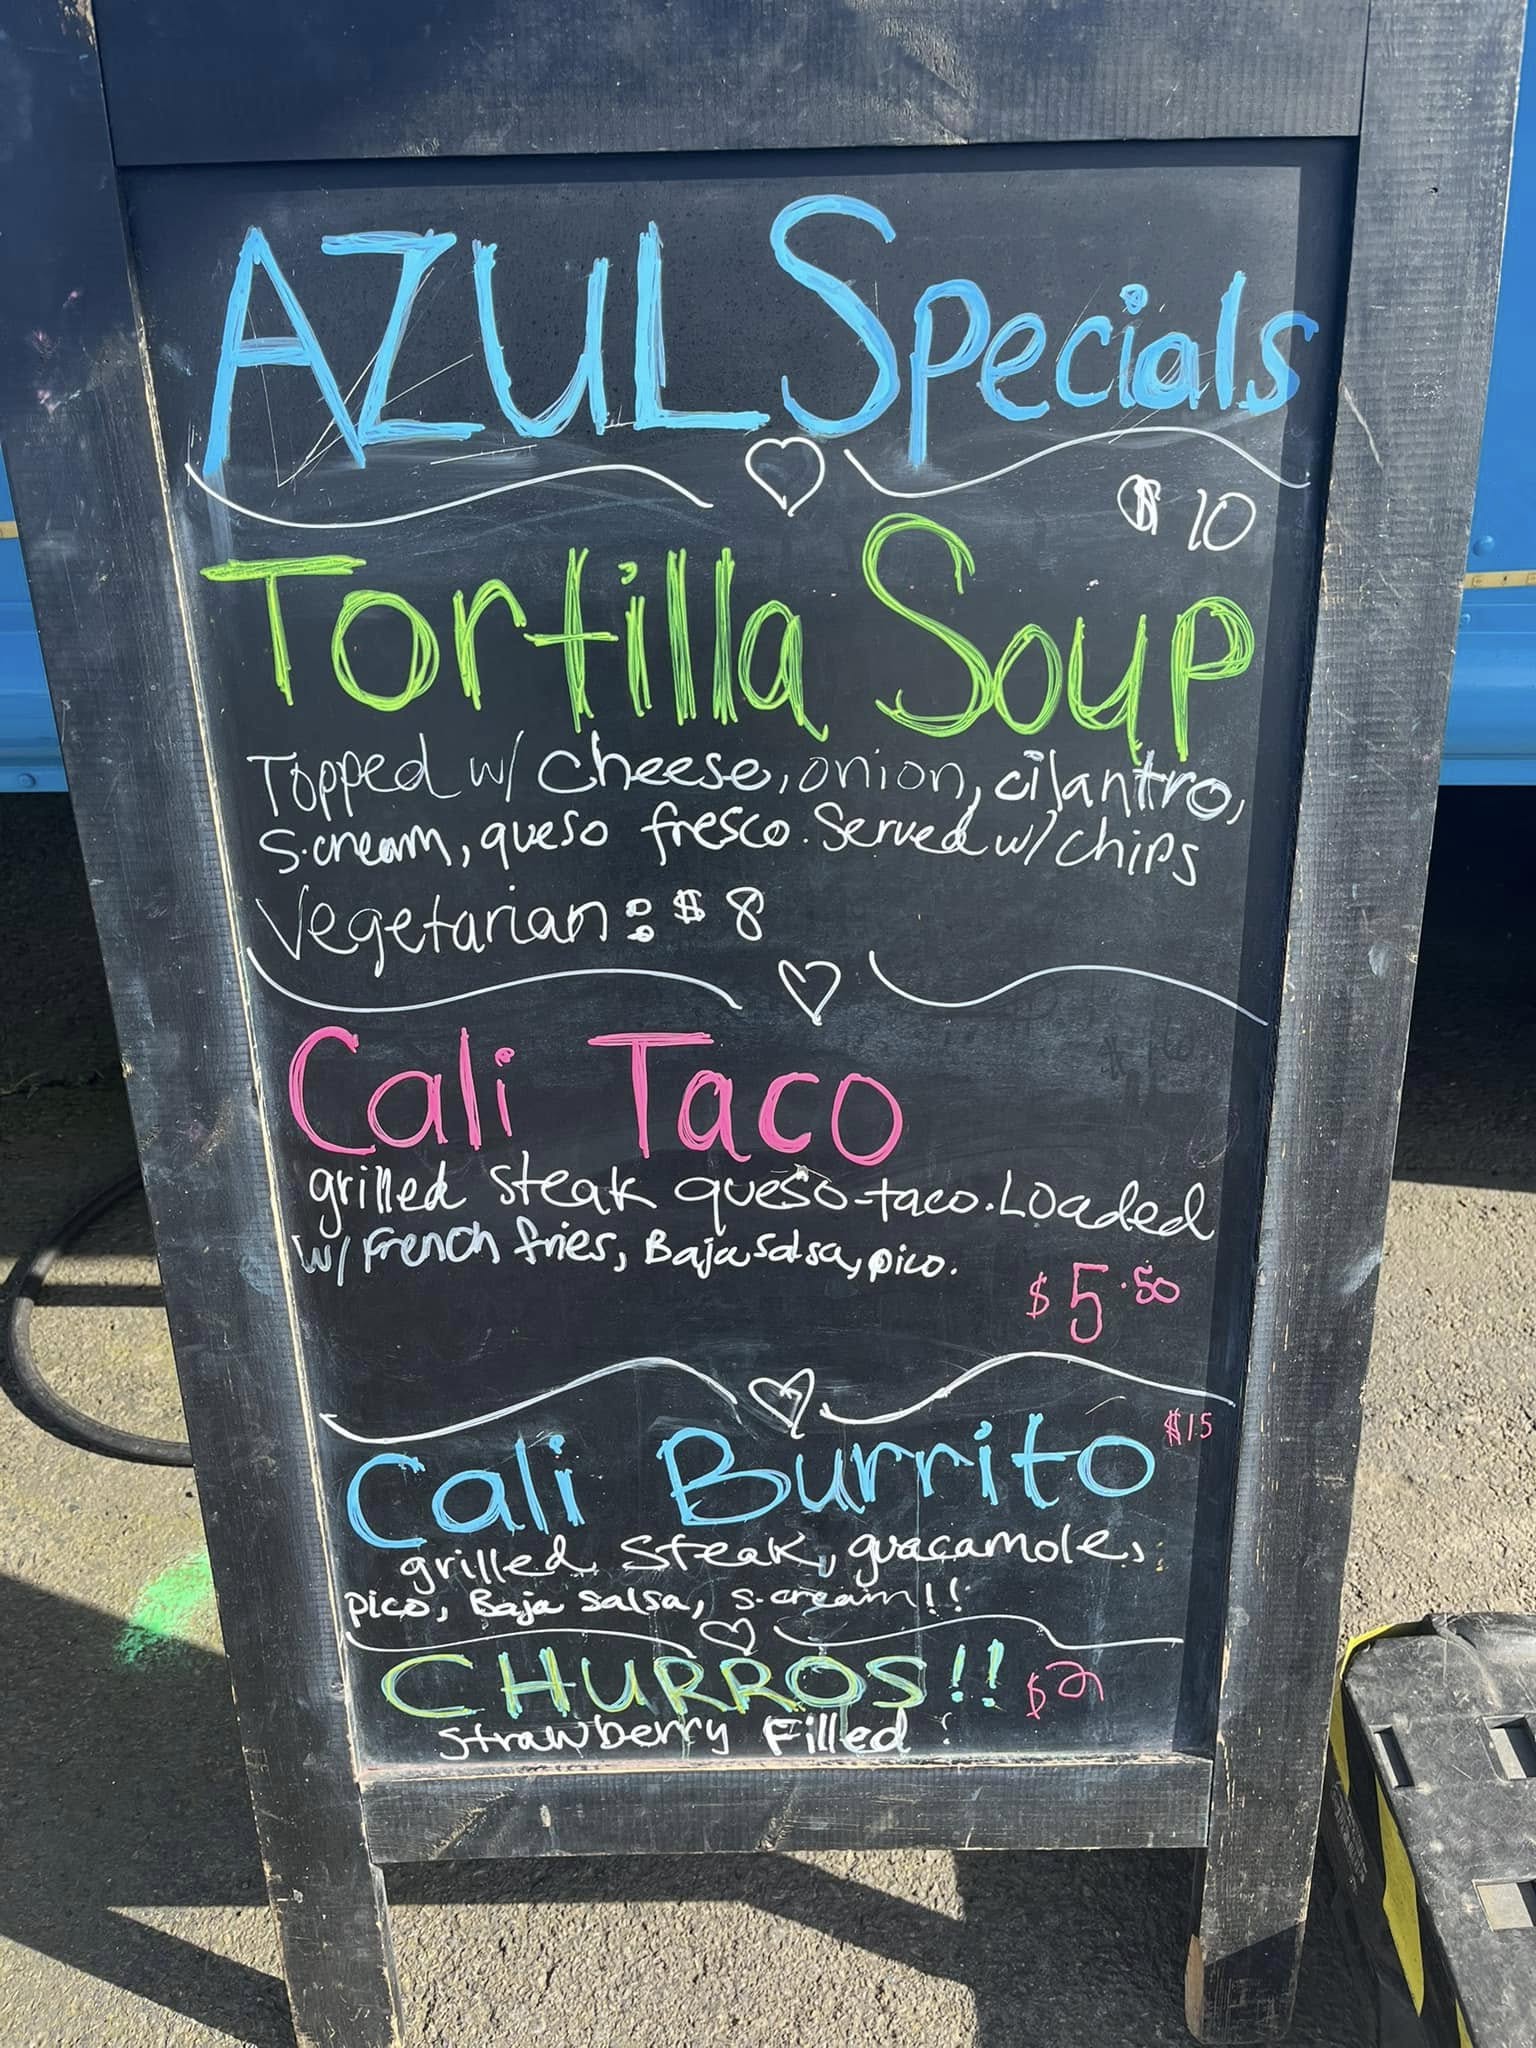 AZUL Specials
$10
Tortilla Soup
Topped w/ cheese, onion, cilantro,
s.cream, queso fresco. Served w/ chips
Vegetarian: $8
Cali Taco
grilled steak queso-taco. Loaded
w/ French fries, Baja salsa, pico.
$5.50
Cali Burrito $15
grilled steak, guacamole,
pico, Baja salsa, s.cream!!
CHURROS!! $2
Strawberry Filled